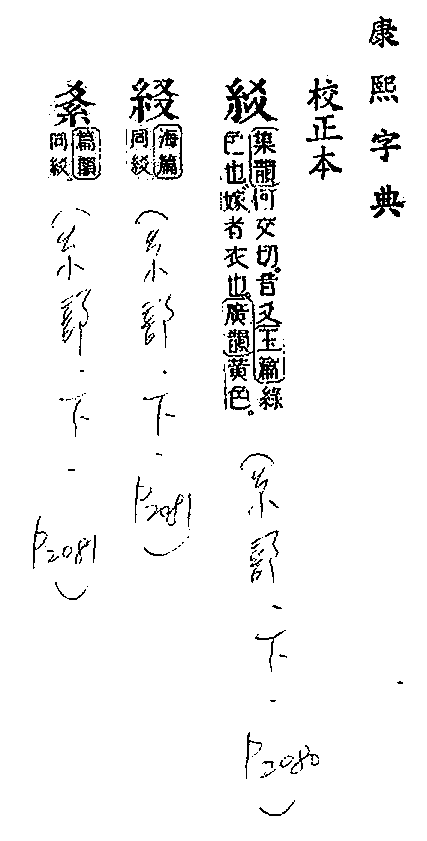 康熙字典
校正本
集韻何交切。音爻玉篇綠
色也。嫁者衣也。廣韻黃色。
(糸部.下.P2080)
海篇
同
(糸部.下.P2081)
篇韻
同
(糸部.下.P2081)